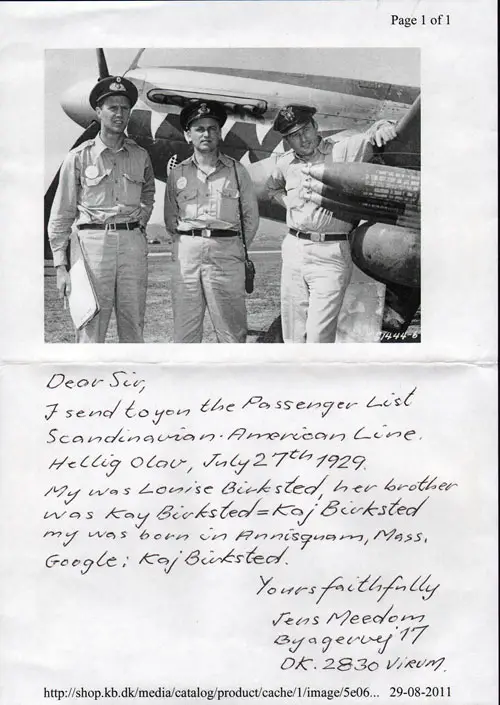 Page 1 of 1
1444-6
Dear Sir,
I send to you the Passenger List
Scandinavian-American Line.
Hellig Olav, July 27th 1929.
My was Louise Birksted, her brother
was Kay Birksted = Kaj Birksted
my was born in Annisquam, Mass.
Google: Kaj Birksted.
Yours faithfully
Jens Meedom
Byagervej 17
DK. 2830 Virum.
http://shop.kb.dk/media/catalog/product/cache/1/image/5e06... 29-08-2011